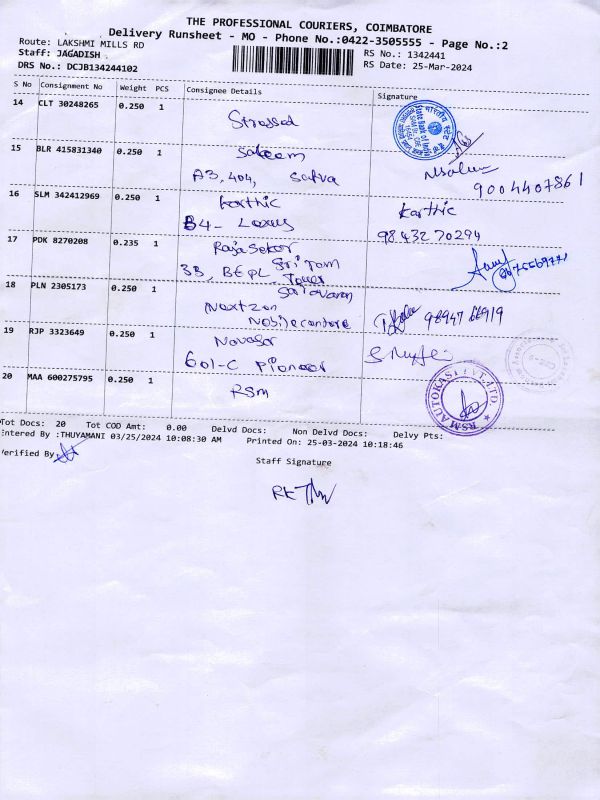 THE PROFESSIONAL COURIERS, COIMBATORE
Delivery Runsheet - MO - Phone No.:0422-3505555 - Page No.:2
Route: LAKSHMI MILLS RD
RS No.: 1342441
Staff: JAGADISH
RS Date: 25-Mar-2024
DRS No.: DCJB134244102
S No Consignment No Weight PCS Consignee Details Signature
14 CLT 30248265 0.250 1
Stressed
15 BLR 415831340 0.250 1 Saleem
A3, 404, Satva
9004407861
16 SLM 342412969 0.250 1 Karthic Karthic
B4- Luxus 98432 70294
17 PDK 8270208 0.235 1 Rajasekar
3B, BEPL Sri Ram
Tower
18 PLN 2305173 0.250 1 Saravanan
Nextzon
98947 66919
19 RJP 3323649 0.250 1
601-C Pioneer
20 MAA 600275795 0.250 1 RSM
RSM AUTOKAST PVT. LTD.
Tot Docs: 20 Tot COD Amt: 0.00 Delvd Docs: Non Delvd Docs: Delvy Pts:
Entered By :THUYAMANI 03/25/2024 10:08:30 AM Printed On: 25-03-2024 10:18:46
Verified By
Staff Signature